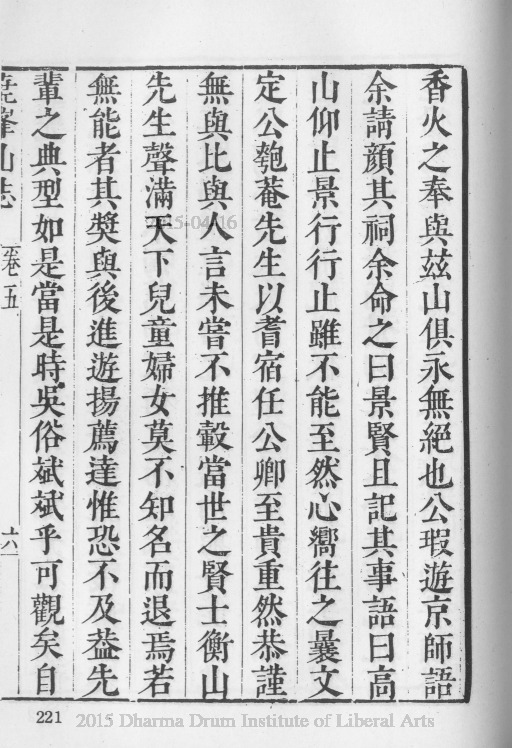 香火之奉與玆山俱永無絕也公瑕遊京師語
余請顔其祠余命之曰景賢且記其事語曰高
山仰止景行行止雖不能至然心嚮往之曩文
定公匏菴先生以耆宿任公卿至貴重然恭謹
無與比與人言未嘗不推轂當世之賢士衡山
先生聲滿天下兒童婦女莫不知名而退焉若
無能者其奬與後進遊揚薦達惟恐不及葢先
輩之典型如是當是時吳俗斌斌乎可觀矣自
峯山志 卷五 六
221
2015 Dharma Drum Institute of Liberal Arts